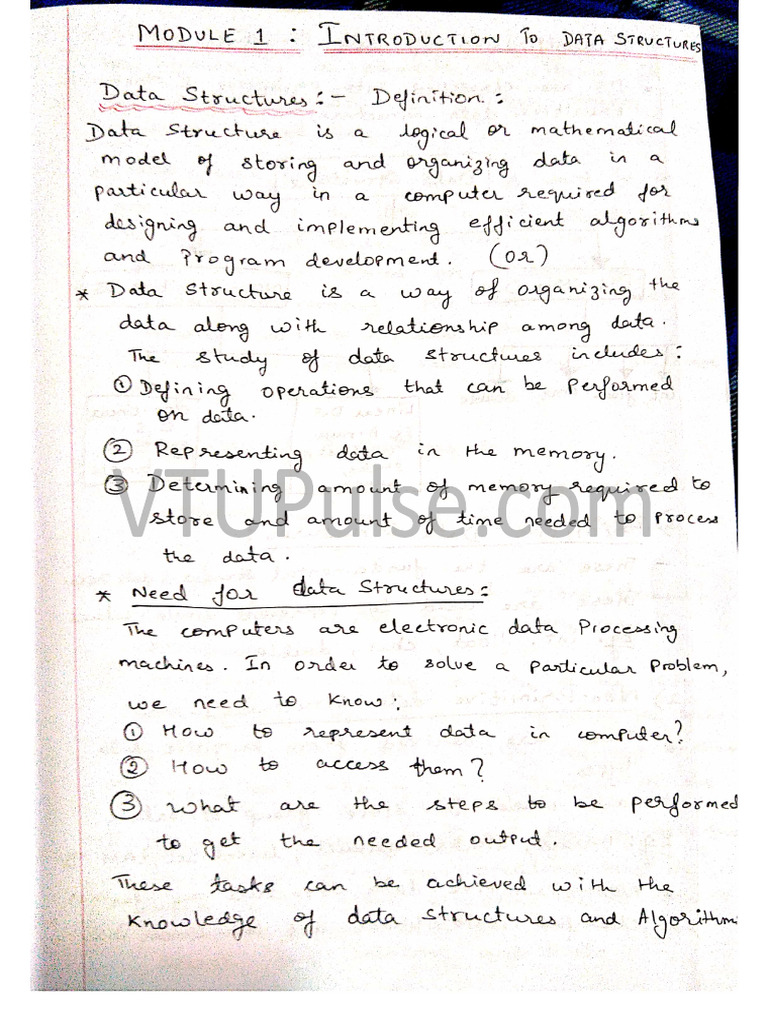 MODULE 1 : INTRODUCTION TO DATA STRUCTURES
Data Structures :- Definition :
Data Structure is a logical or mathematical
model of storing and organizing data in a
particular way in a computer required for
designing and implementing efficient algorithms
and Program development. (OR)
* Data Structure is a way of organizing the
data along with relationship among data.
The study of data structures includes :
① Defining operations that can be Performed
on data.
② Representing data in the memory.
VTUPulse.com
③ Determining amount of memory required to
store and amount of time needed to Process
the data.
* Need for data Structures :
The computers are electronic data Processing
machines. In order to solve a Particular Problem,
we need to know :
① How to represent data in computer?
② How to access them?
③ What are the steps to be performed
to get the needed output.
These tasks can be achieved with the
Knowledge of data structures and Algorithm